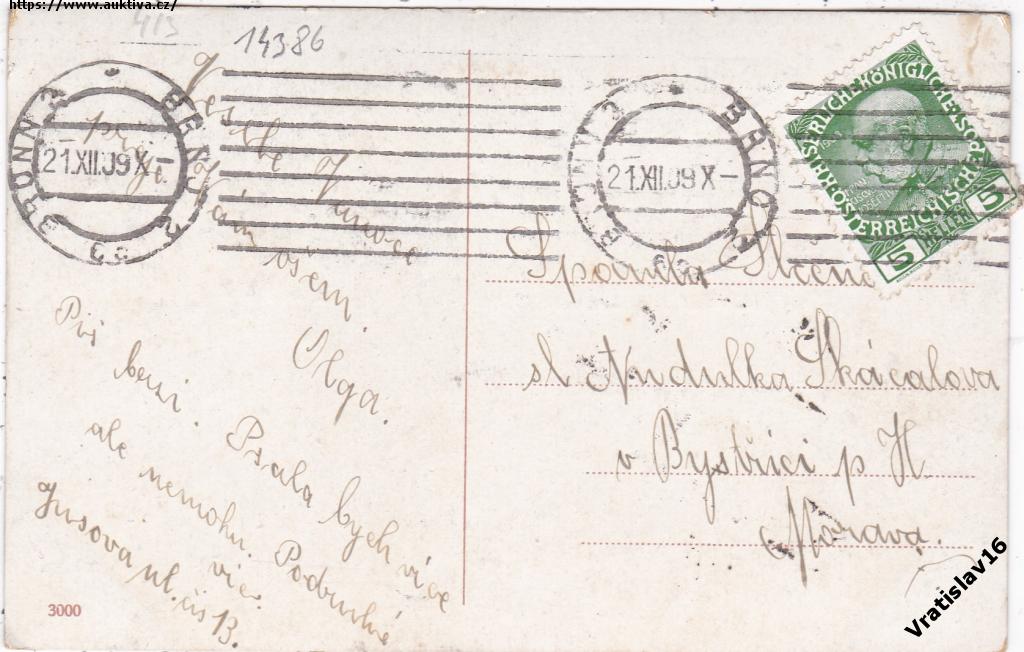 https://www.auktiva.cz/
413
14386
BRÜNN 2 BRNO 2
21.XII.09 X-
BRÜNN 2 BRNO 2
21.XII.09 X-
KAISERLICHE KÖNIGLICHE
ÖSTERREICHISCHE POST
5 HELLER 5
Veselé Vánoce
přeje
Vám všem
Olga.
Piš
brzi. Psala bych více
ale nemohu. Podruhé
více.
Husova ul. čís 13.
sl Skácalova
v Bystřici p H
Morava.
3000
Vratislav16